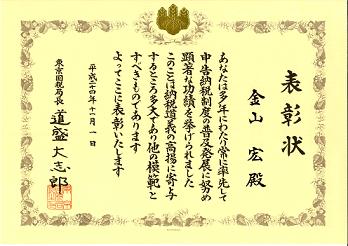 表彰状
金山 宏 殿
あなたは多年にわたり常に率先して
申告納税制度の普及発展に努め
顕著な功績を挙げられました
このことは納税道義の高揚に寄与
するところ多大であり他の模範と
すべきものであります
よってここに表彰いたします
平成二十四年十一月一日
東京国税局長 道盛大志郎